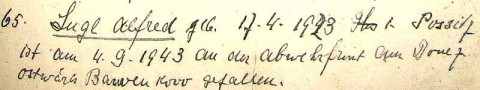 65. Lugl Alfred geb. 17.4.1923 Hs 1 Possitz
ist am 4.9.1943 an der Abwehrfront am Donez
ostwärts Barwenkowo gefallen.